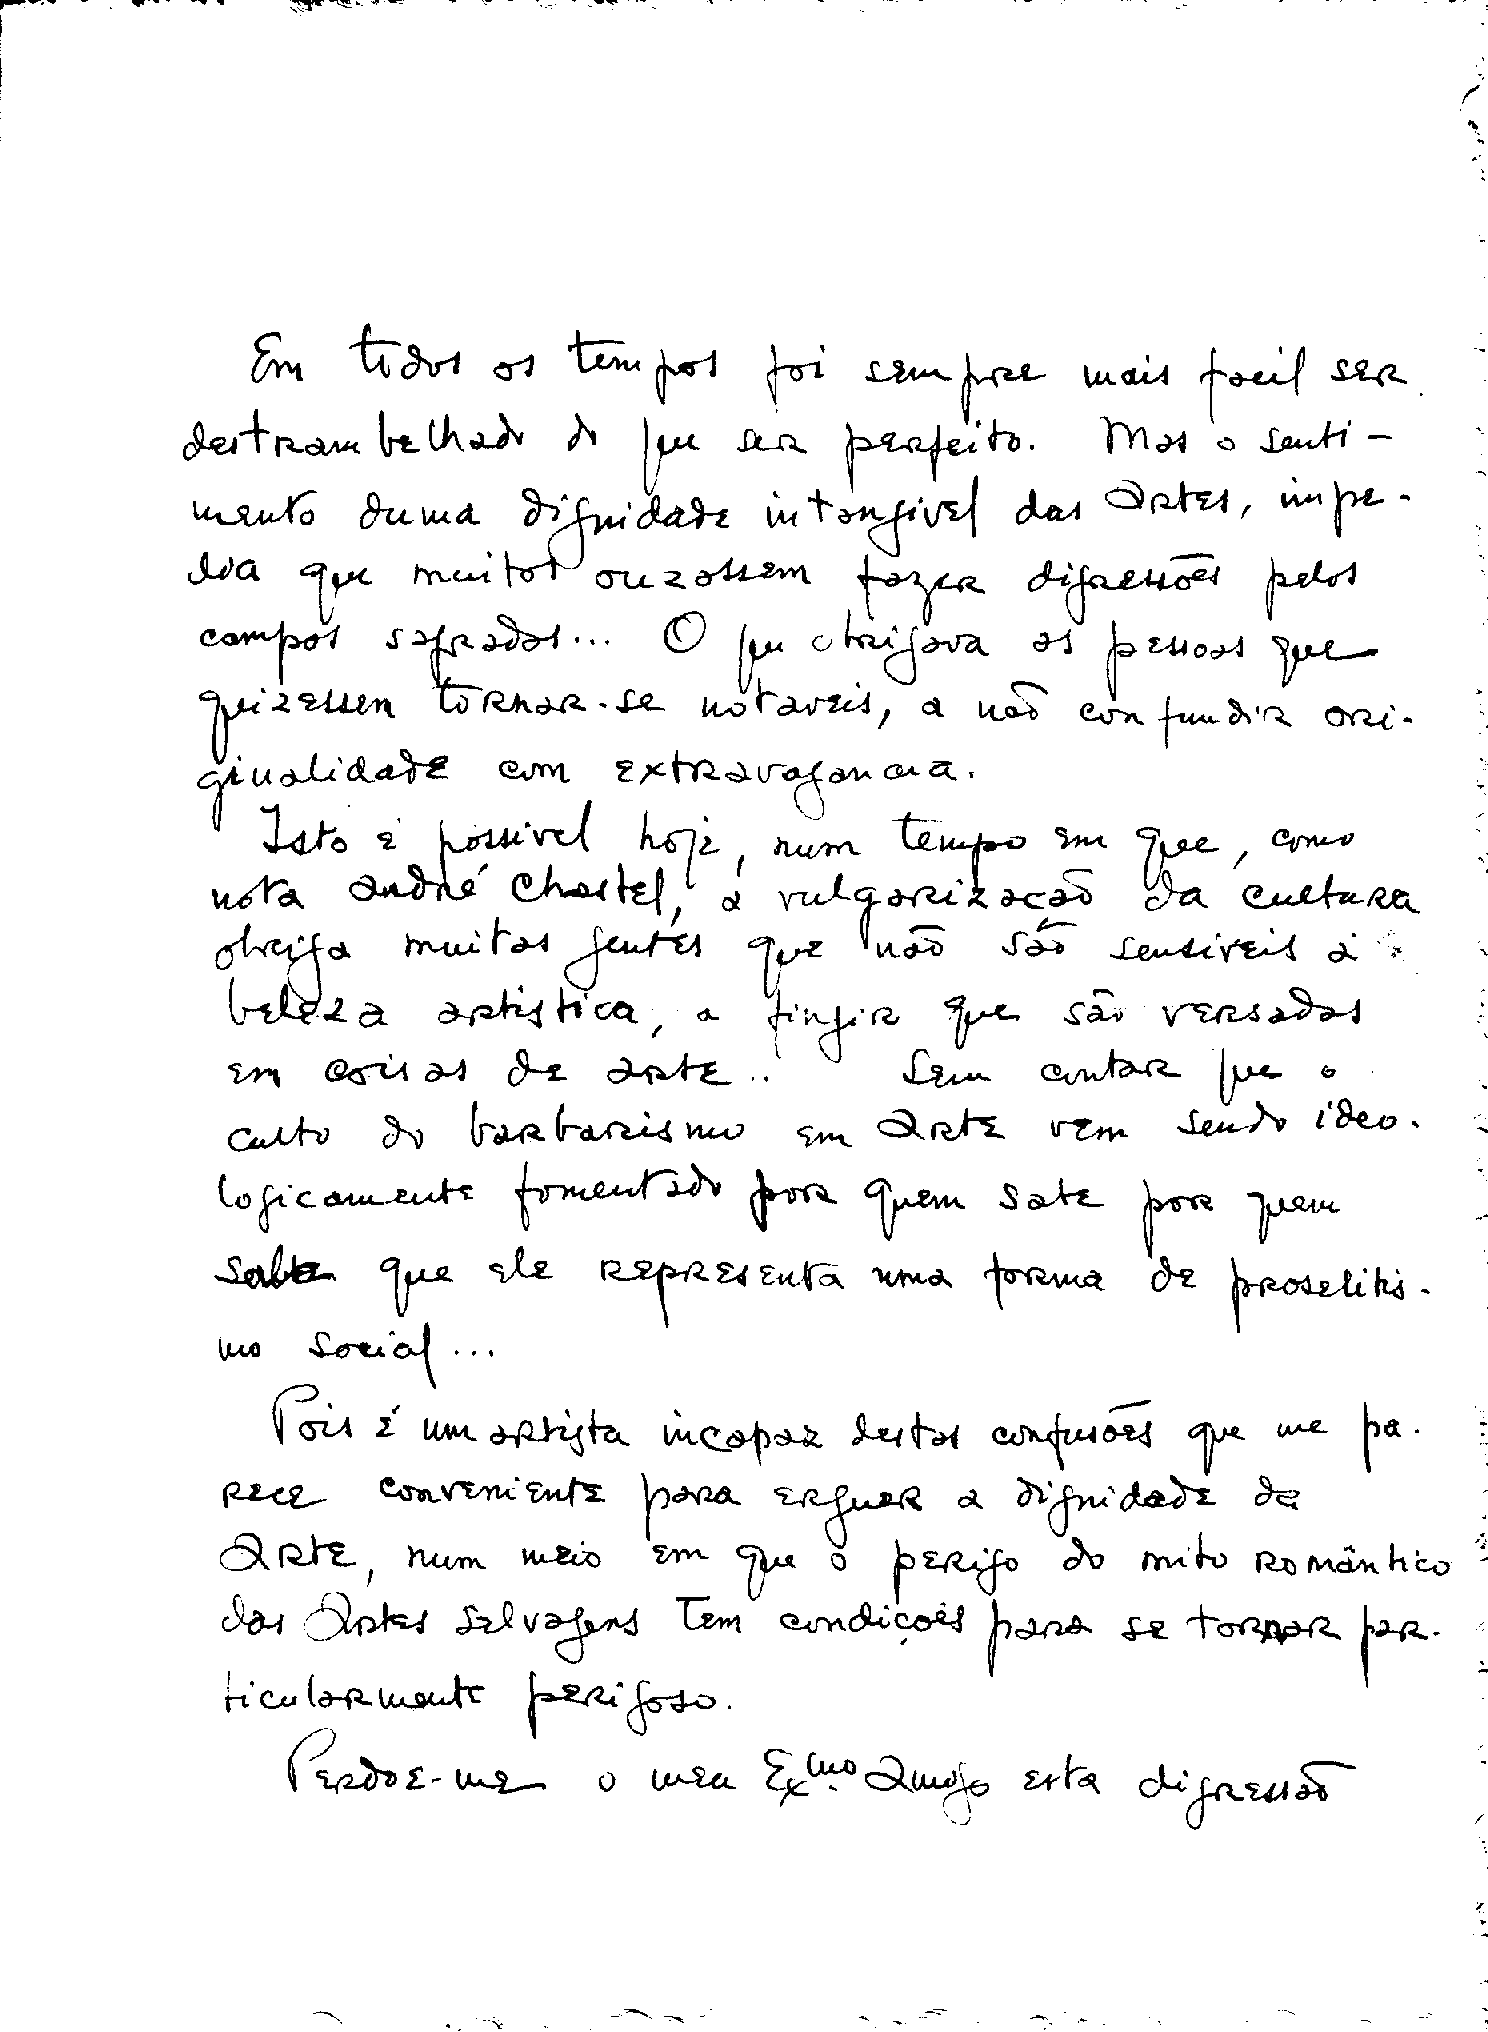 Em todos os tempos foi sempre mais facil ser
destrambelhado do que ser perfeito. Mas o senti-
mento duma dignidade intangivel das Artes, impe-
dia que muitos ouzassem fazer digressões pelos
campos sagrados... O que obrigava as pessoas que
quizessem tornar-se notaveis, a não confundir ori-
ginalidade com extravagancia.
Isto é possivel hoje, num tempo em que, como
nota André Chastel, a vulgarização da cultura
obriga muitas gentes que não são sensiveis á
beleza artistica, a fingir que são versadas
em coisas de arte.. Sem contar que o
culto do barbarismo em Arte vem sendo ideo-
logicamente fomentado por quem sabe por quem
sabe que ele representa uma forma de proselitis-
mo social...
Pois é um artista incapaz destas confusões que me pa-
rece conveniente para erguer a dignidade da
Arte, num meio em que o perigo do mito romântico
das Artes Selvagens tem condições para se tornar par-
ticularmente perigoso.
Perdoe-me o meu Exmo. Amigo esta digressão